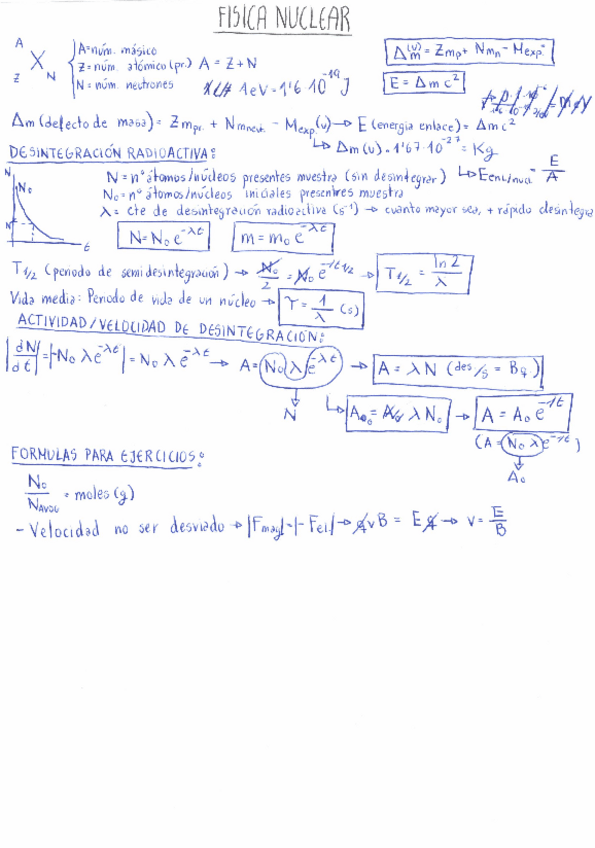 FISICA NUCLEAR
A
X
Z N
A=núm. másico
Z=núm. atómico (pr.) A = Z+N
N = núm. neutrones 1eV=1'6 10^-19 J
Δm (u) = Zmp + Nmn - Mexp.
E = Δm c²
Δm (defecto de masa) = Zmpr. + Nmneut. - Mexp (u) → E (energia enlace) = Δmc²
↳ Δm (u) · 1'67·10^-27 = Kg
DESINTEGRACIÓN RADIOACTIVA:
N
No
N
t
N = nº átomos/núcleos presentes muestra (sin desintegrar) ↳ = E/A
No = nº átomos/núcleos iniciales presentes muestra
λ = cte de desintegración radioactiva (s^-1) → cuanto mayor sea, + rápido desintegra
N = No e^-λt m = mo e^-λt
T1/2 (periodo de semidesintegración) → No/2 = No e^-λt1/2 → T1/2 = ln 2/λ
Vida media: Periodo de vida de un núcleo → τ = 1/λ (s)
ACTIVIDAD/VELOCIDAD DE DESINTEGRACION:
|dN/dt| = |-No λ e^-λt| = No λ e^-λt → A = No λ e^-λt → A = λ N (des/s = Bq)
N
↳ Ao = λ No → A = Ao e^-λt
(A = No λ e^-λt)
Ao
FORMULAS PARA EJERCICIOS:
No/NAVOG = moles (g)
- Velocidad no ser desviado → |Fmag| = |-Fel.| → q v B = E q → v = E/B